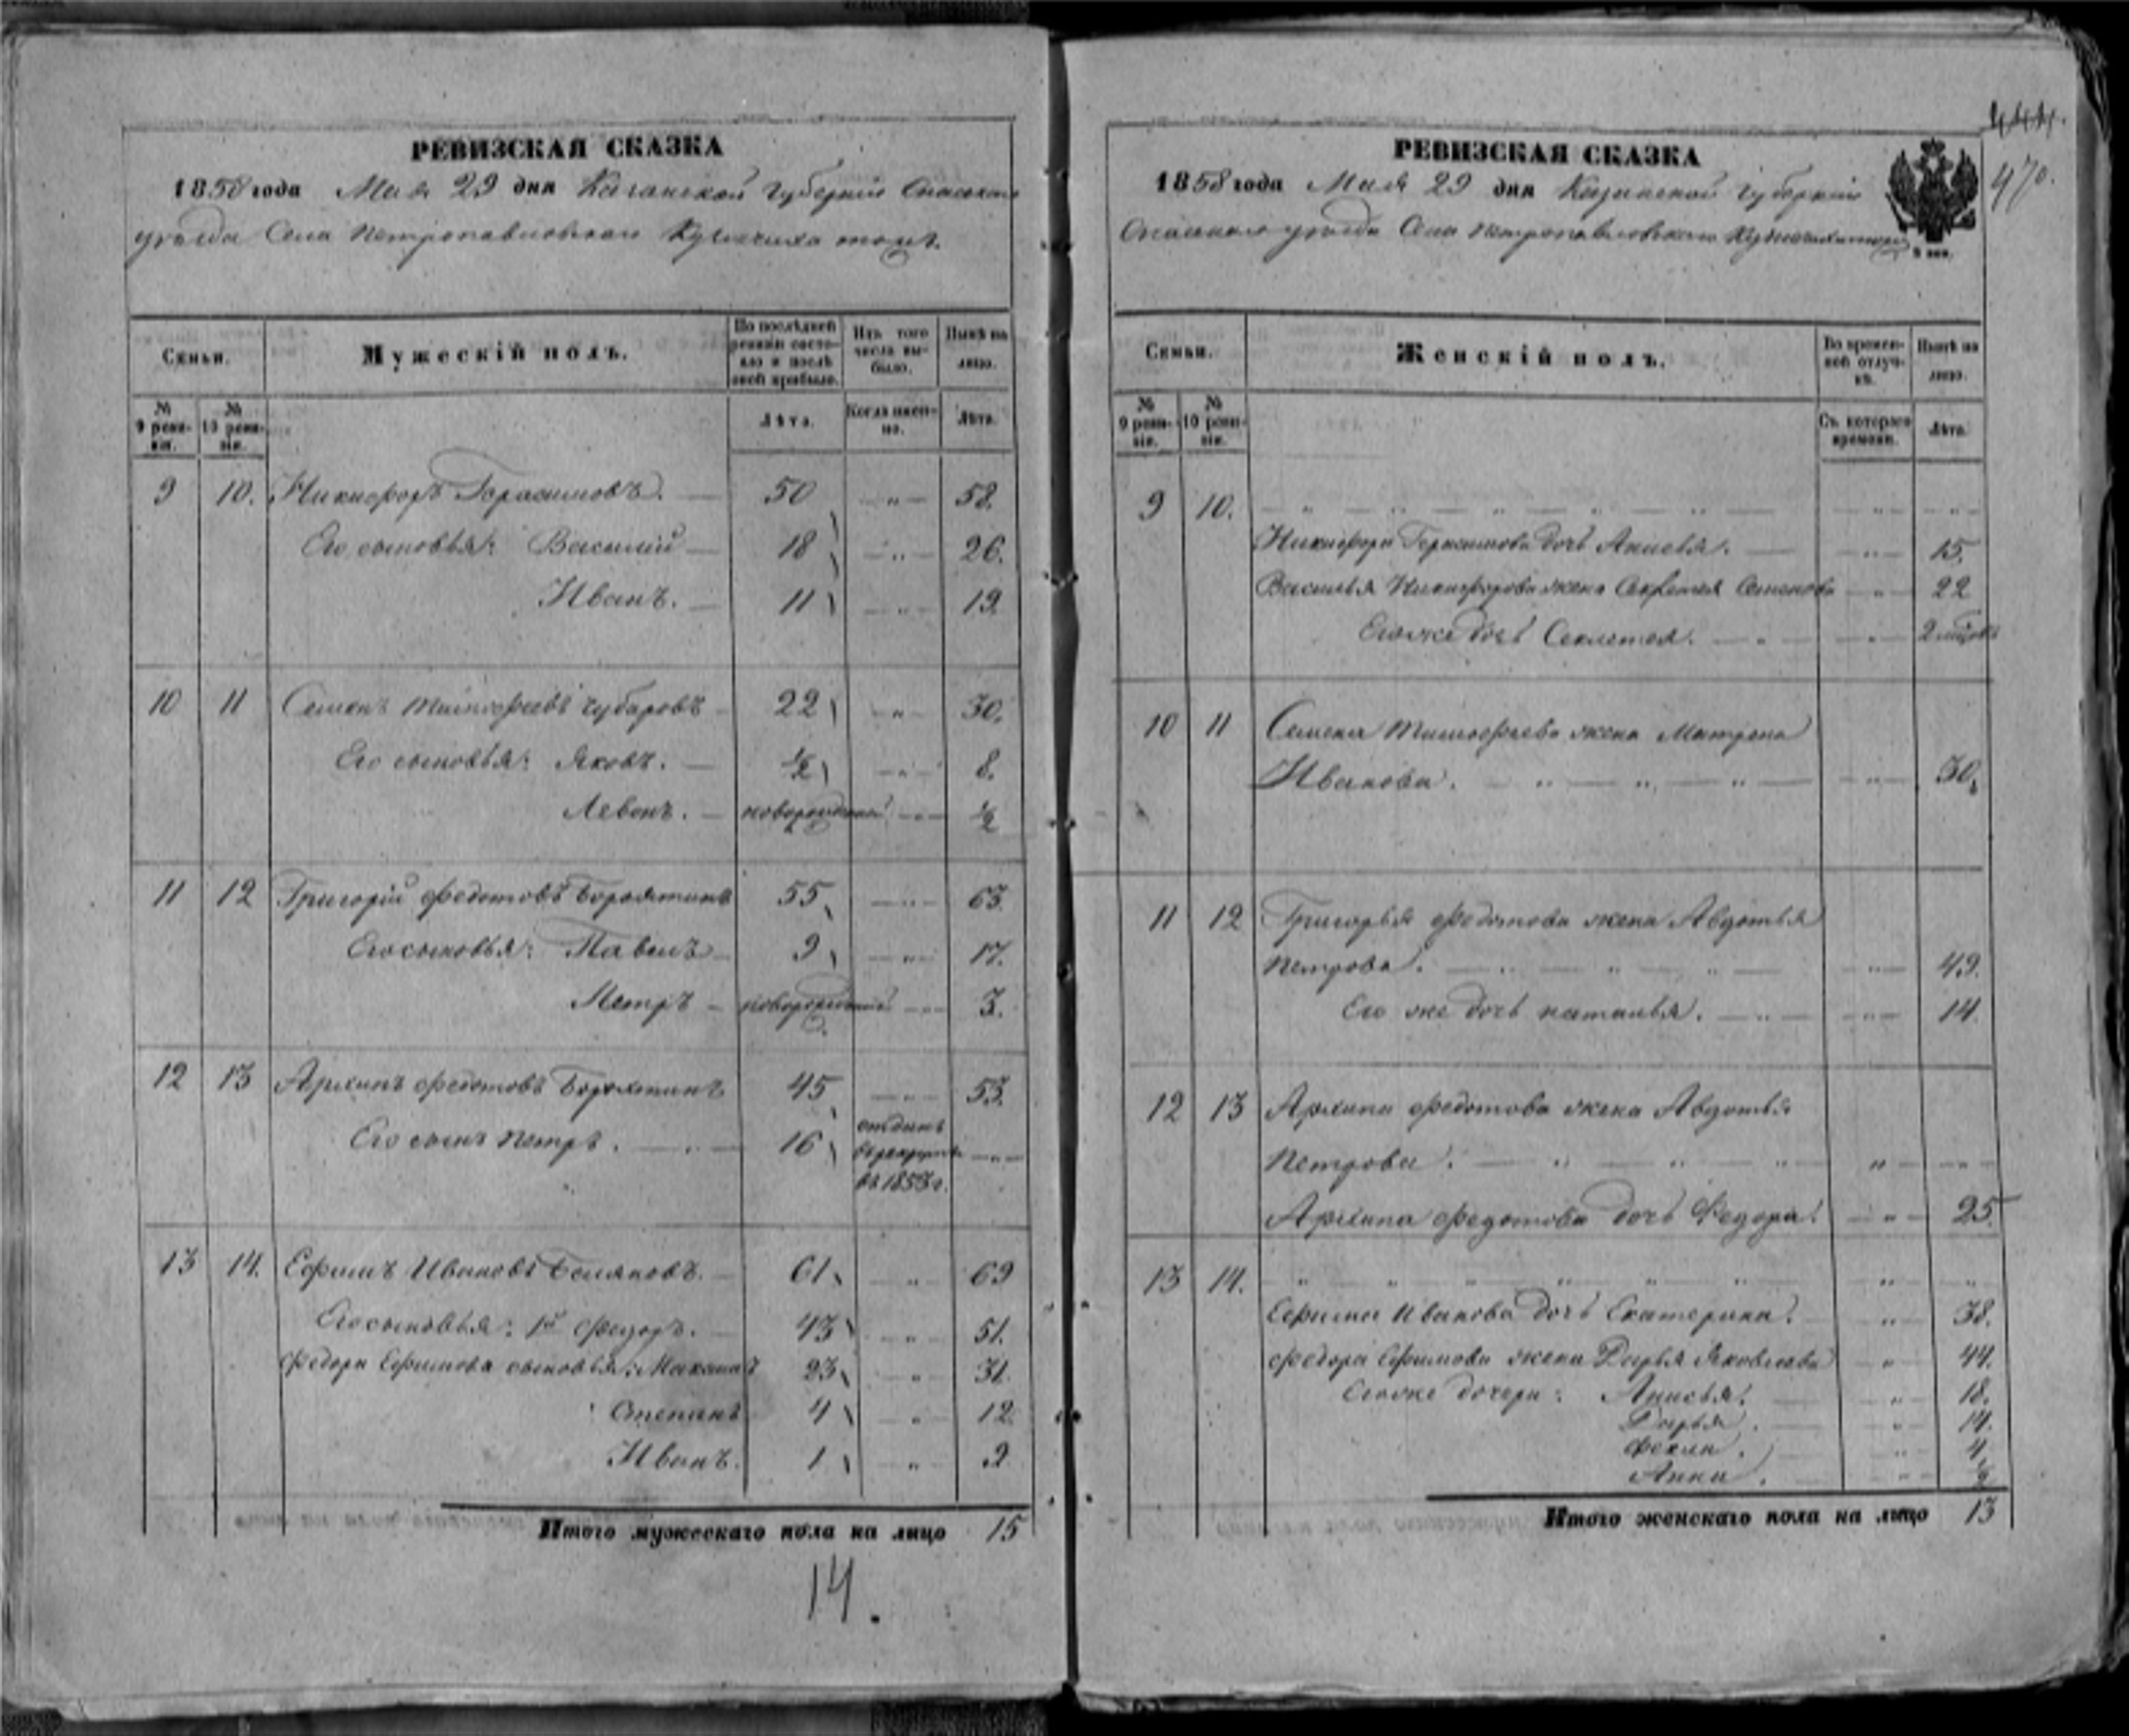 РЕВИЗСКАЯ СКАЗКА
1858 года Мая 29 дня Казанской Губернiи Спасскаго
уѣзда Села Петропавловскаго Кузнечиха тожъ.
Семьи.
Мужескiй полъ.
По послѣдней ревизiи состояло и послѣ оной прибыло.
Изъ того числа выбыло.
Нынѣ на лицо.
№ 9 ревизiи.
№ 10 ревизiи.
Лѣта.
Когда именно.
Лѣта.
9 10. Никифоръ Герасимовъ. 50 „ 58.
Его сыновья: Василiй 18 „ 26.
Иванъ. 11 „ 19.
10 11 Семенъ Тимофѣевъ Чубаровъ 22 „ 30.
Его сыновья: Яковъ. ½ „ 8.
Левонъ. новорожденный „ ½
11 12 Григорiй Федотовъ 55 „ 63.
Его сыновья: Павелъ 9 „ 17.
Петръ новорожденный „ 3.
12 13 Архипъ Федотовъ 45 „ 53.
Его сынъ Петръ. 16 отданъ въ рекруты въ 1853 г. „
13 14. Ефимъ Ивановъ Беляковъ. 61 „ 69
Его сыновья: 1й Федоръ. 43 „ 51.
Федора Ефимова сыновья: Максимъ 23 „ 31.
Степанъ 4 „ 12.
Иванъ. 1 „ 9
Итого мужескаго пола на лицо 15
14.
444.
470.
РЕВИЗСКАЯ СКАЗКА
1858 года Мая 29 дня Казанской Губернiи
Спасскаго уѣзда Села Петропавловскаго Кузнечиха тожъ
Семьи.
Женскiй полъ.
Во временной отлучкѣ.
Нынѣ на лицо.
№ 9 ревизiи.
№ 10 ревизiи.
Съ котораго времени.
Лѣта.
9 10. „ „ „ „ „ „ „
Никифора Герасимова дочь Анисья. „ 15.
Василья Никифорова жена Семенова „ 22
Его же дочь Секлетея. „ 2
10 11 Семена Тимофѣева жена Матрена
Иванова. „ „ „ „ 30.
11 12 Григорья Федотова жена Авдотья
Петрова. „ „ „ 49.
Его же дочь Наталья. „ „ 14.
12 13 Архипа Федотова жена Авдотья
Петрова. „ „ „ „ „
Архипа Федотова дочь Федора. „ 25.
13 14. „ „ „ „ „ „ „ „
Ефима Иванова дочь Екатерина. „ 38.
Федора Ефимова жена Дарья Яковлева „ 44.
Его же дочери: Анисья. „ 18.
Дарья. „ 14.
Фекла. „ 4
Анна. „ ½
Итого женскаго пола на лицо 13